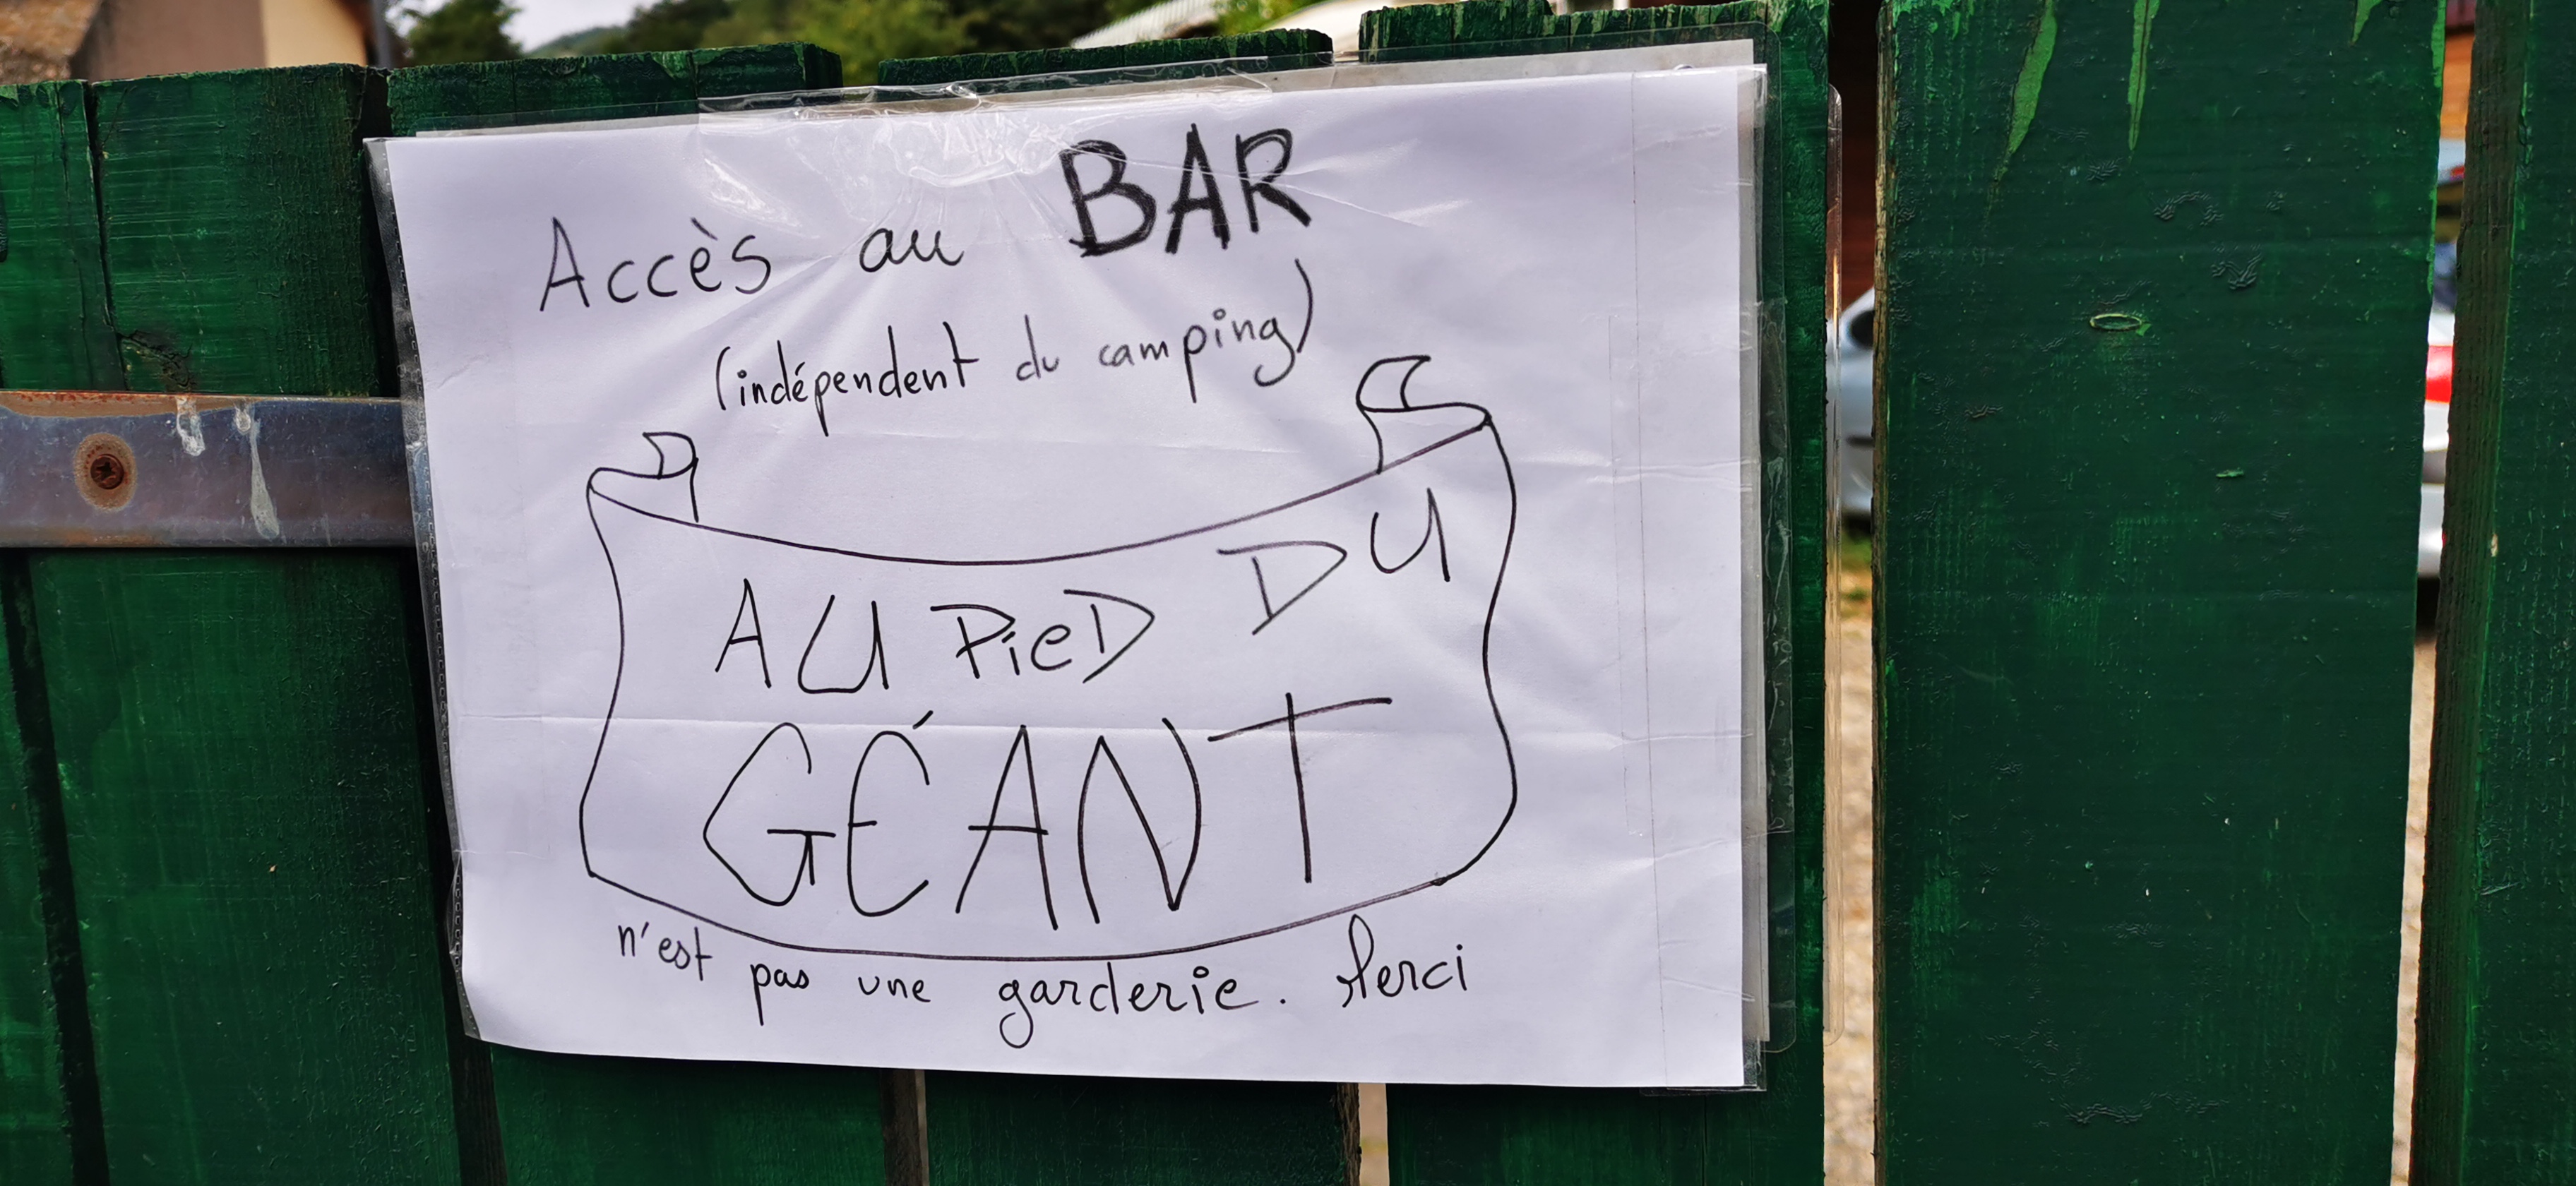 Accès au BAR
(indépendent du camping)
AU PieD DU
GÉANT
n'est pas une garderie. Merci